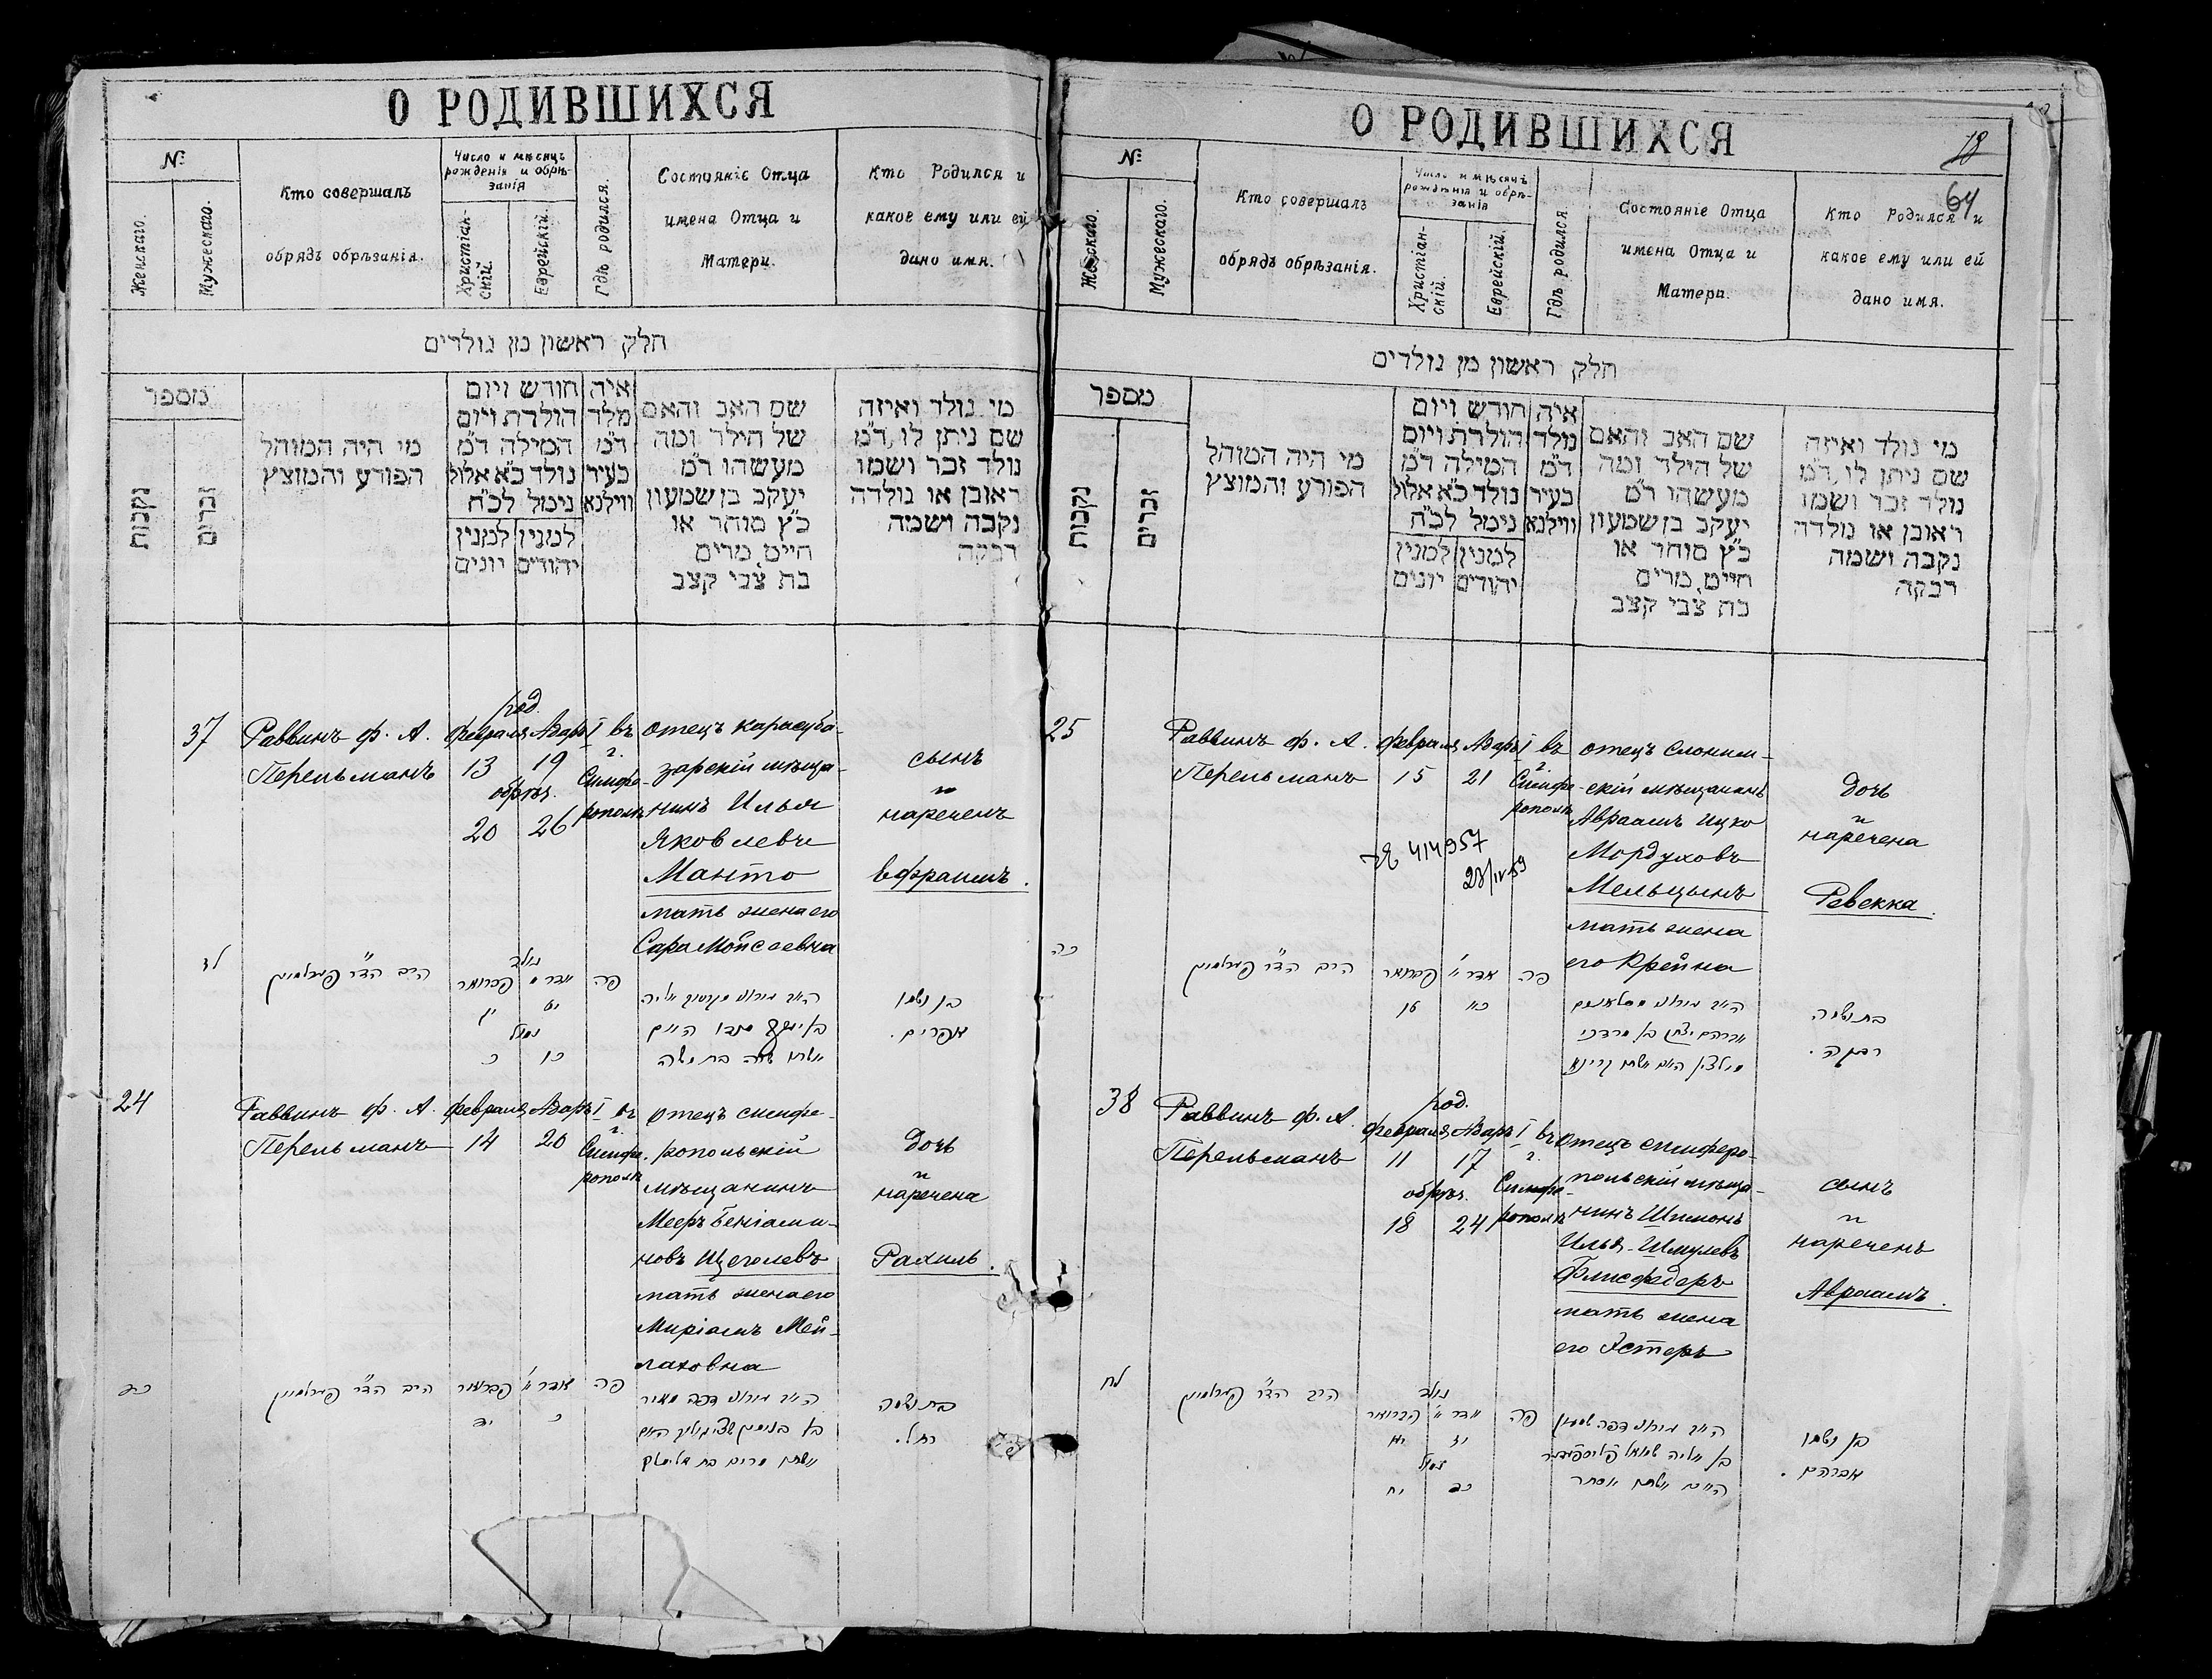 О РОДИВШИХСЯ
№
Женскаго.
Мужескаго.
Кто совершалъ
обрядъ обрѣзанія.
Число и мѣсяцъ
рожденія и обрѣ-
занія
Христіан-
скій.
Еврейскій.
Гдѣ родился.
Состояніе Отца
имена Отца и
Матери.
Кто Родился и
какое ему или ей
дано имя.
חלק ראשון מן נולדים
מספר
נקבות
זכרים
מי היה המוהל
הפורע והמוצץ
חודש ויום
הולדת ויום
המילה ד״מ
נולד כ״א אלול
נימל לכ״ח
למנין
יהודים
למנין
יונים
איה
נולד
ד״מ
בעיר
ווילנא
שם האב והאם
של הילד ומה
מעשהו ד״מ
יעקב בן שמעון
כ״ץ סוחר או
חייט מרים
בת צבי קצב
מי נולד ואיזה
שם ניתן לו, ד״מ
נולד זכר ושמו
ראובן או נולדה
נקבה ושמה
רבקה
37
Раввинъ Ф. А.
Перельманъ
род.
Февраля Адаръ I
13 19
обрѣз.
20 26
въ
г.
Симфе-
рополѣ
отецъ карасуба-
зарскій мѣща-
нинъ Илья
Яковлевъ
Манто
мать жена его
Сара Мойсеевна
сынъ
и
нареченъ
Ефраимъ.
לז
הרב הד״ר פערלמאן
נולד
פברואר
יט
יג
נמול
כו
כ
פה
בן ושמו
אפרים.
24
Раввинъ Ф. А.
Перельманъ
Февраля Адаръ I
14 20
въ
г.
Симфе-
рополѣ
отецъ симфе-
ропольскій
мѣщанинъ
Мееръ Беніами-
новъ Щеголевъ
мать жена его
Миріамъ Мей-
лаховна
дочь
и
наречена
Рахиль.
כד
הרב הד״ר פערלמאן
פברואר
כ
יד
פה
בת ושמה
רחל.
О РОДИВШИХСЯ
18
64
№
Женскаго.
Мужескаго.
Кто совершалъ
обрядъ обрѣзанія.
Число и мѣсяцъ
рожденія и обрѣ-
занія
Христіан-
скій.
Еврейскій.
Гдѣ родился.
Состояніе Отца
имена Отца и
Матери.
Кто Родился и
какое ему или ей
дано имя.
חלק ראשון מן נולדים
מספר
נקבות
זכרים
מי היה המוהל
הפורע והמוצץ
חודש ויום
הולדת ויום
המילה ד״מ
נולד כ״א אלול
נימל לכ״ח
למנין
יהודים
למנין
יונים
איה
נולד
ד״מ
בעיר
ווילנא
שם האב והאם
של הילד ומה
מעשהו ד״מ
יעקב בן שמעון
כ״ץ סוחר או
חייט מרים
בת צבי קצב
מי נולד ואיזה
שם ניתן לו, ד״מ
נולד זכר ושמו
ראובן או נולדה
נקבה ושמה
רבקה
25
Раввинъ Ф. А.
Перельманъ
Февраля Адаръ I
15 21
въ
г.
Симфе-
рополѣ
414957
28/IV-59
отецъ слоним-
скій мѣщанинъ
Авраамъ Ицко
Мордуховъ
Мельцынъ
мать жена
его Крейна
дочь
и
наречена
Ревекка.
כה
הרב הד״ר פערלמאן
פברואר
כא
טו
פה
בת ושמה
רבקה.
38
Раввинъ Ф. А.
Перельманъ
род.
Февраля Адаръ I
11 17
обрѣз.
18 24
въ
г.
Симфе-
рополѣ
отецъ симферо-
польскій мѣща-
нинъ Шимонъ
Илья-Шмулевъ
Флисфедеръ
мать жена
его Эстеръ
сынъ
и
нареченъ
Авраамъ.
לח
הרב הד״ר פערלמאן
נולד
פברואר
יז
יא
נמול
כד
יח
פה
בן ושמו
אברהם.